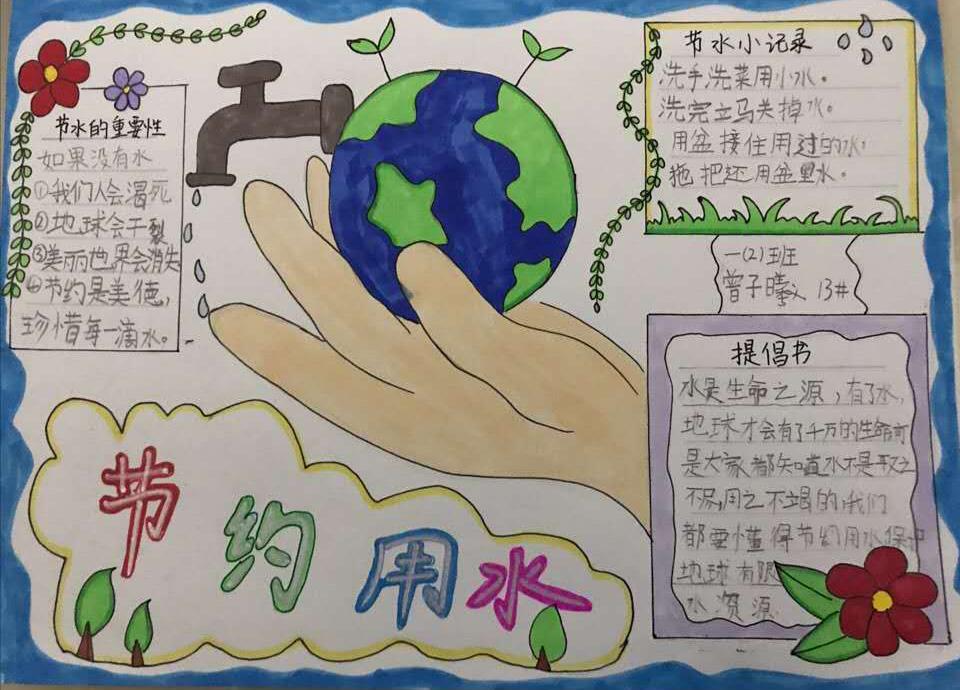 节水的重要性
如果没有水
①我们人会渴死
②地球会干裂
③美丽世界会消失
④节约是美德,
珍惜每一滴水。
节水小记录
洗手洗菜用小水。
洗完立马关掉水。
用盆接住用过的水,
拖把还用盆里水。
一(2)班
曾子曦 13#
提倡书
水是生命之源,有了水,
地球才会有了千万的生命可
是大家都知道水不是取之
不尽,用之不竭的,我们
都要懂得节约用水保护
地球有限
水资源
节约用水